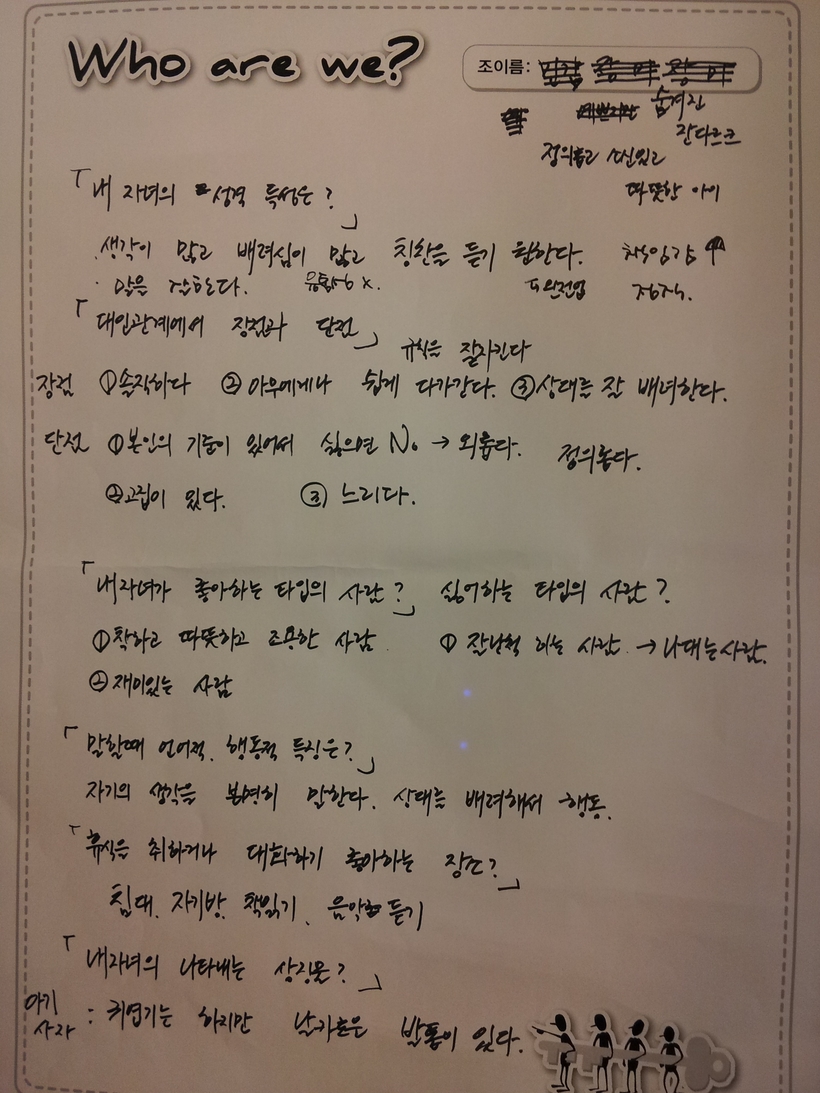 Who are we?
조이름:
숨겨진
잔다르크
정의롭고 소신있고
따뜻한 아이
「내 자녀의 성격 특성은?」
· 생각이 많고 배려심이 많고 칭찬을 듣기 원한다. 책임감 ↑
· 말을 잘한다. 융통성 x.
「대인관계에서 장점과 단점」
규칙을 잘지킨다
장점 ①솔직하다 ②아무에게나 쉽게 다가간다. ③상대를 잘 배려한다.
단점 ①본인의 기준이 있어서 싫으면 No → 외롭다. 정의롭다.
②고집이 있다. ③느리다.
「내자녀가 좋아하는 타입의 사람?」 싫어하는 타입의 사람?
①착하고 따뜻하고 조용한 사람 ① 잘난척 하는 사람. → 나대는사람.
②재미있는 사람
「말할때 언어적, 행동적 특징은?」
자기의 생각을 분명히 말한다. 상대를 배려해서 행동.
「휴식을 취하거나 대화하기 좋아하는 장소?」
침대, 자기방, 책읽기, 음악 듣기
「내자녀의 나타내는 상징물?」
아기
사자 : 귀엽기는 하지만 날카로운 발톱이 있다.